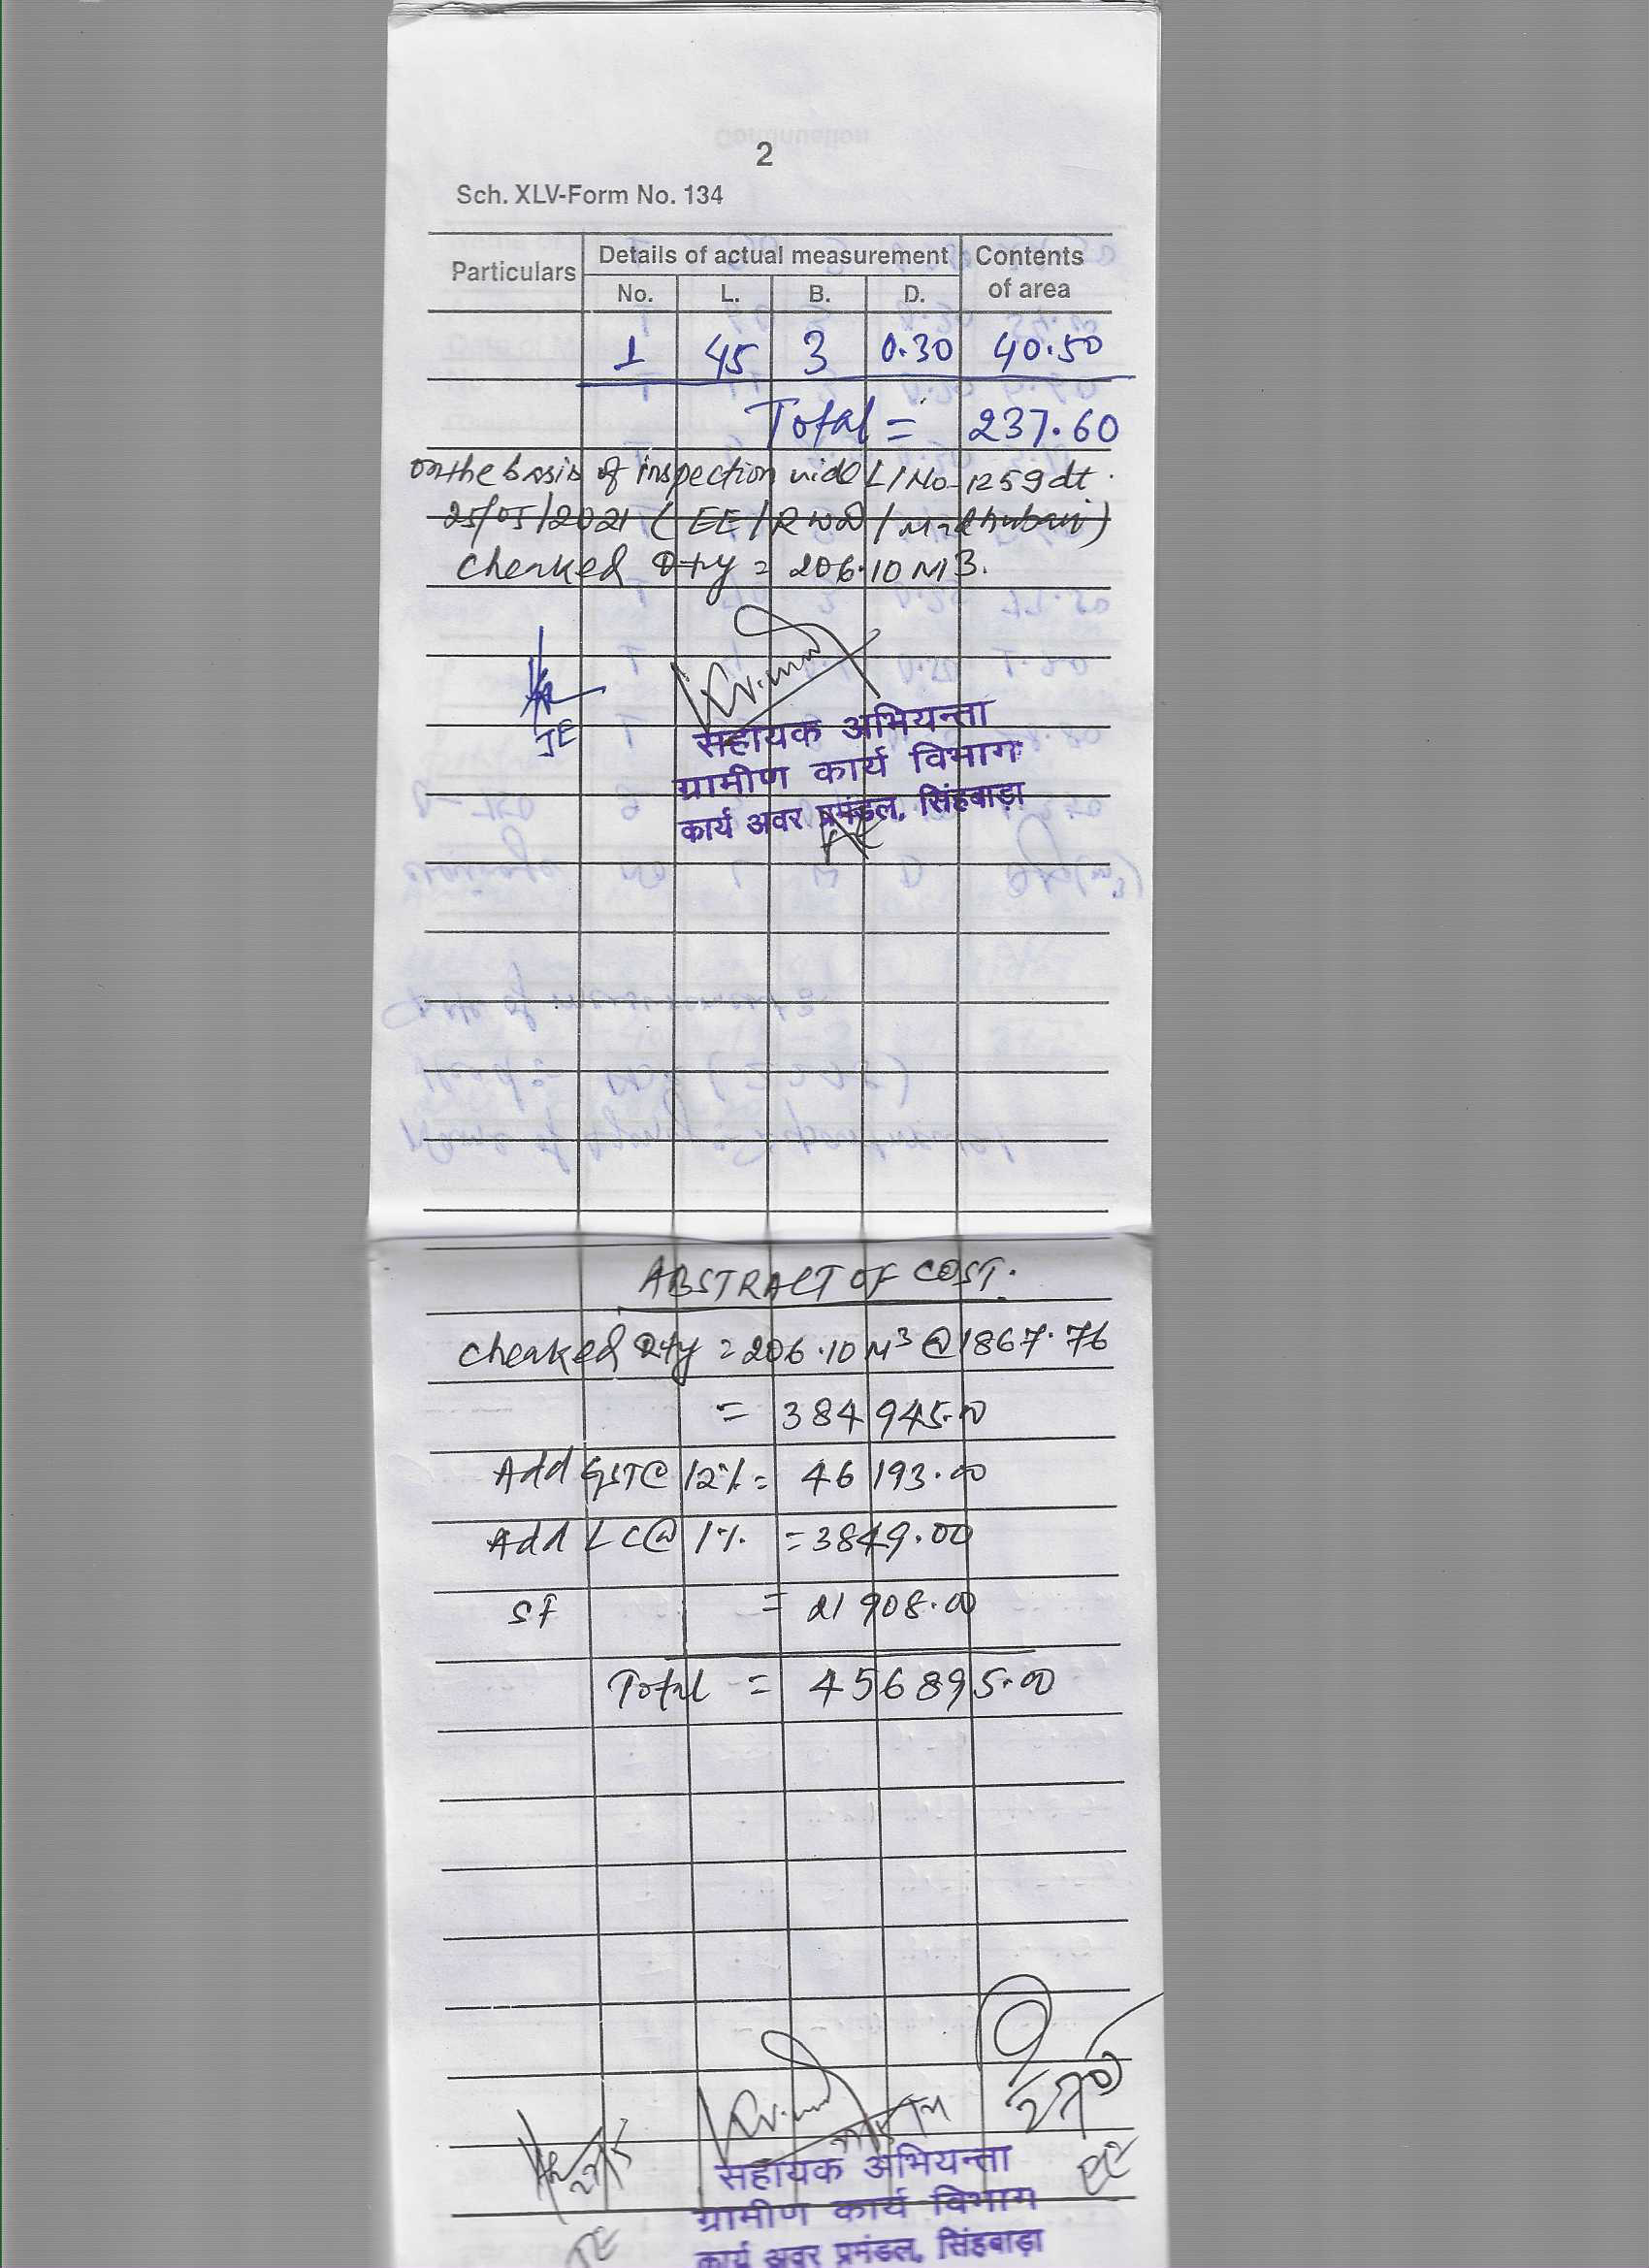 2
Sch. XLV-Form No. 134
Particulars Details of actual measurement Contents of area
No. L. B. D.
1 45 3 0.30 40.50
Total = 237.60
on the basis of inspection vide L/No-1259 dt.
25/05/2021 (EE/RWD/Madhubani)
cheaked Qty = 206.10 M3.
JE
सहायक अभियन्ता
ग्रामीण कार्य विभाग
कार्य अवर प्रमंडल, सिंहवाड़ा
AE
ABSTRACT OF COST.
cheaked Qty = 206.10 M³ @ 1867.76
= 384945.00
Add GST@ 12% = 46193.00
Add LC@ 1% = 3849.00
SF = 21908.00
Total = 456895.00
EE
सहायक अभियन्ता
ग्रामीण कार्य विभाग
JE
कार्य अवर प्रमंडल, सिंहवाड़ा